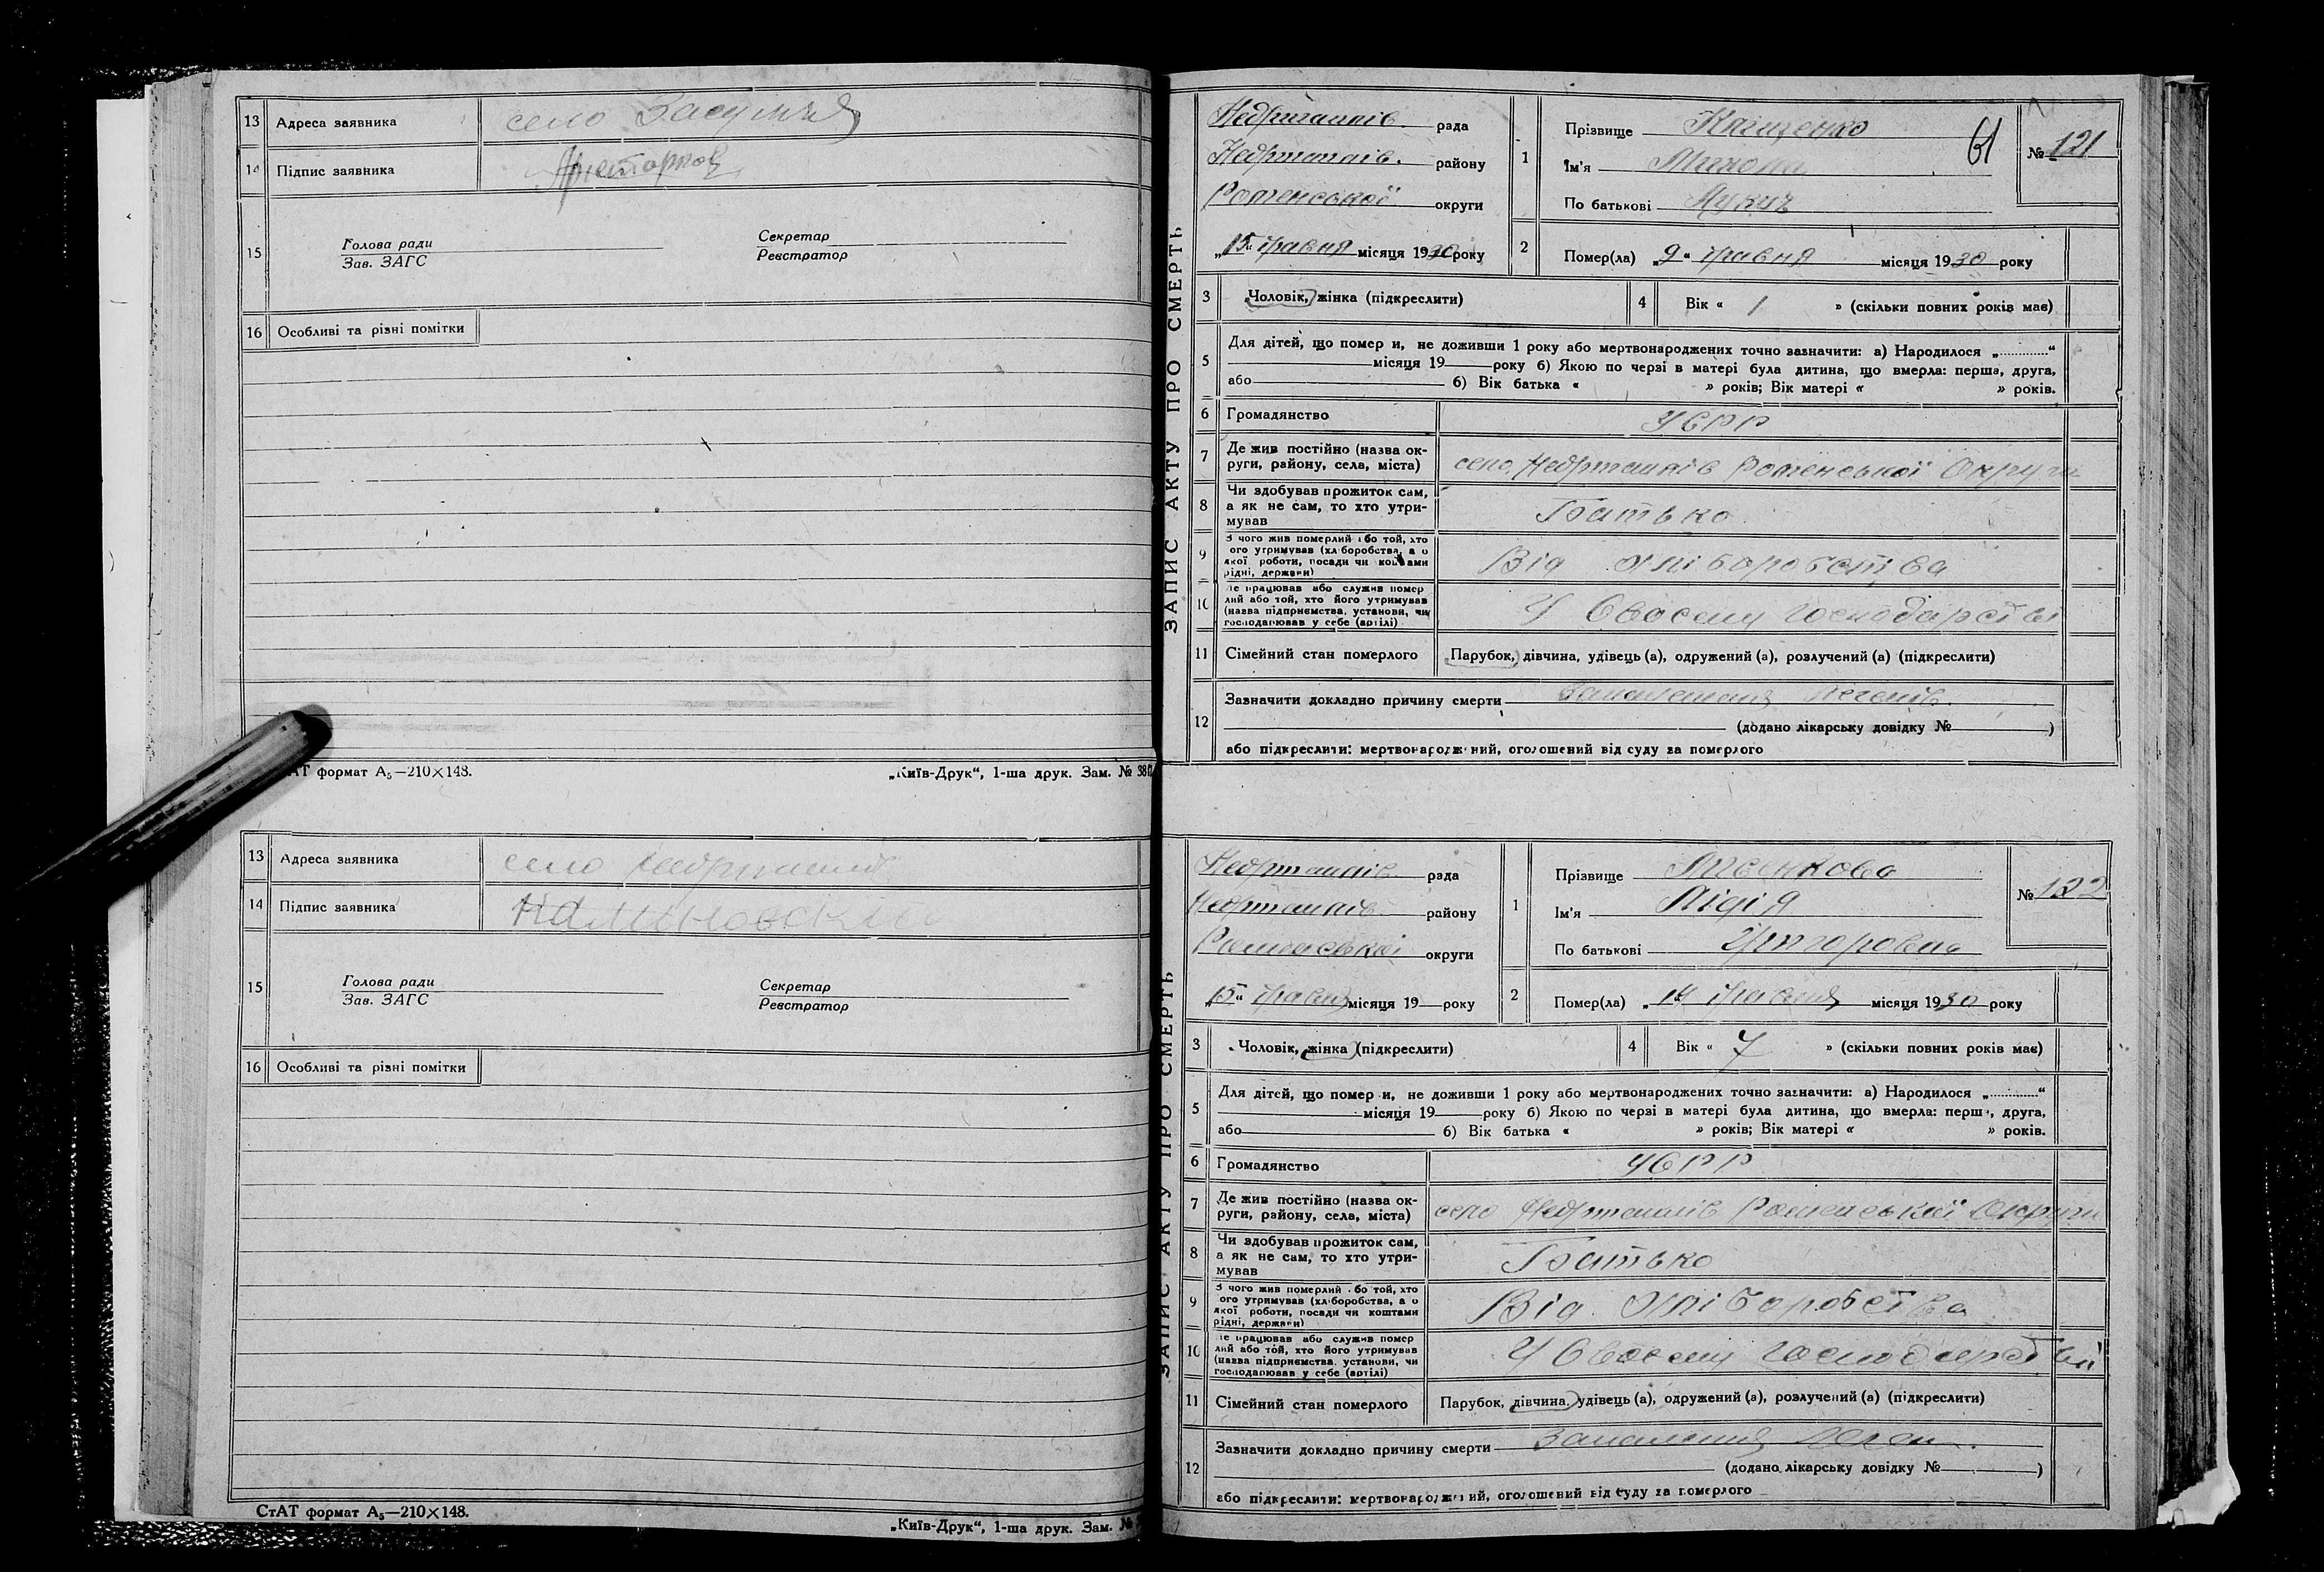 13 Адреса заявника село Засулля
14 Підпис заявника
15 Голова ради Секретар
Зав. ЗАГС Реєстратор
16 Особливі та різні помітки
формат А5—210×148. „Київ-Друк“, 1-ша друк. Зам. № 38
13 Адреса заявника село
14 Підпис заявника Калиновский
15 Голова ради Секретар
Зав. ЗАГС Реєстратор
16 Особливі та різні помітки
СтАТ формат А5—210×148.
„Київ-Друк“, 1-ша друк. Зам. №
ЗАПИС АКТУ ПРО СМЕРТЬ
Недригайлів рада
Недригайлів. району
Роменської округи
„15“ травня місяця 1930 року
1 Прізвище Кащенко 61
Ім'я Микола
По батькові Лукич
№ 121
2 Помер(ла) „9“ травня місяця 1930 року
3 Чоловік, жінка (підкреслити)
4 Вік « 1 » (скільки повних років має)
5 Для дітей, що помер и, не доживши 1 року або мертвонароджених точно зазначити: а) Народилося „............“
місяця 19 року б) Якою по черзі в матері була дитина, що вмерла: перша, друга,
або б) Вік батька « » років; Вік матері « » років.
6 Громадянство УСРР
7 Де жив постійно (назва ок-
руги, району, села, міста) село Недригайлів Роменської Округи
8 Чи здобував прожиток сам,
а як не сам, то хто утри-
мував Батько
9 З чого жив померлий або той, хто
ого утримував (хліборобства, а о
якої роботи, посади чи коштами
рідні, держави) Від хліборобства
10 Де працював або служив помер
лий або той, хто його утримував
(назва підприємства, установи, чи
господарював у себе (артілі) У Своєму господарстві
11 Сімейний стан померлого Парубок, дівчина, удівець (а), одружений (а), розлучений (а) (підкреслити)
12 Зазначити докладно причину смерти Запалення легенів.
(додано лікарську довідку № )
або підкреслити: мертвонароджений, оголошений від суду за померлого
ЗАПИС АКТУ ПРО СМЕРТЬ
Недригайлів рада
Недригайлів району
Роменської округи
„15“ травня місяця 19 року
1 Прізвище
Ім'я Лідія
По батькові Григоровна
№ 122
2 Помер(ла) „14 травня місяця 1930 року
3 Чоловік, жінка (підкреслити)
4 Вік « 7 » (скільки повних років має)
5 Для дітей, що помер и, не доживши 1 року або мертвонароджених точно зазначити: а) Народилося „............“
місяця 19 року б) Якою по черзі в матері була дитина, що вмерла: перша, друга,
або б) Вік батька « » років; Вік матері « » років.
6 Громадянство УСРР
7 Де жив постійно (назва ок-
руги, району, села, міста) село Недригайлів Роменської Округи
8 Чи здобував прожиток сам,
а як не сам, то хто утри-
мував Батько
9 З чого жив померлий або той, хто
ого утримував (хліборобства, а о
якої роботи, посади чи коштами
рідні, держави) Від хліборобства
10 Де працював або служив помер
лий або той, хто його утримував
(назва підприємства, установи, чи
господарював у себе (артілі) У Своєму господарстві
11 Сімейний стан померлого Парубок, дівчина, удівець (а), одружений (а), розлучений (а) (підкреслити)
12 Зазначити докладно причину смерти Запалення леген.
(додано лікарську довідку № )
або підкреслити: мертвонароджений, оголошений від суду за померлого